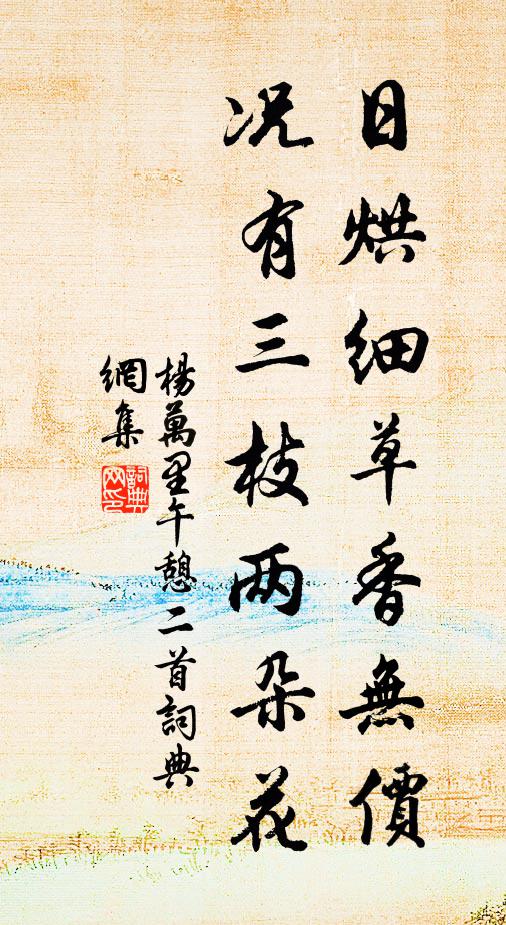 日烘细草香無價
况有三枝两朵花
楊萬里午憩二首詞典
網集
詞典
网印